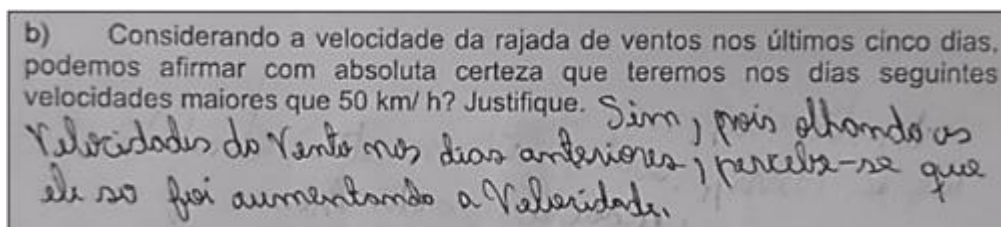 b) Considerando a velocidade da rajada de ventos nos últimos cinco dias,
podemos afirmar com absoluta certeza que teremos nos dias seguintes
velocidades maiores que 50 km/ h? Justifique. Sim, pois olhando as
Velocidades do Vento nos dias anteriores, percebe-se que
ele so foi aumentando a Velocidade.